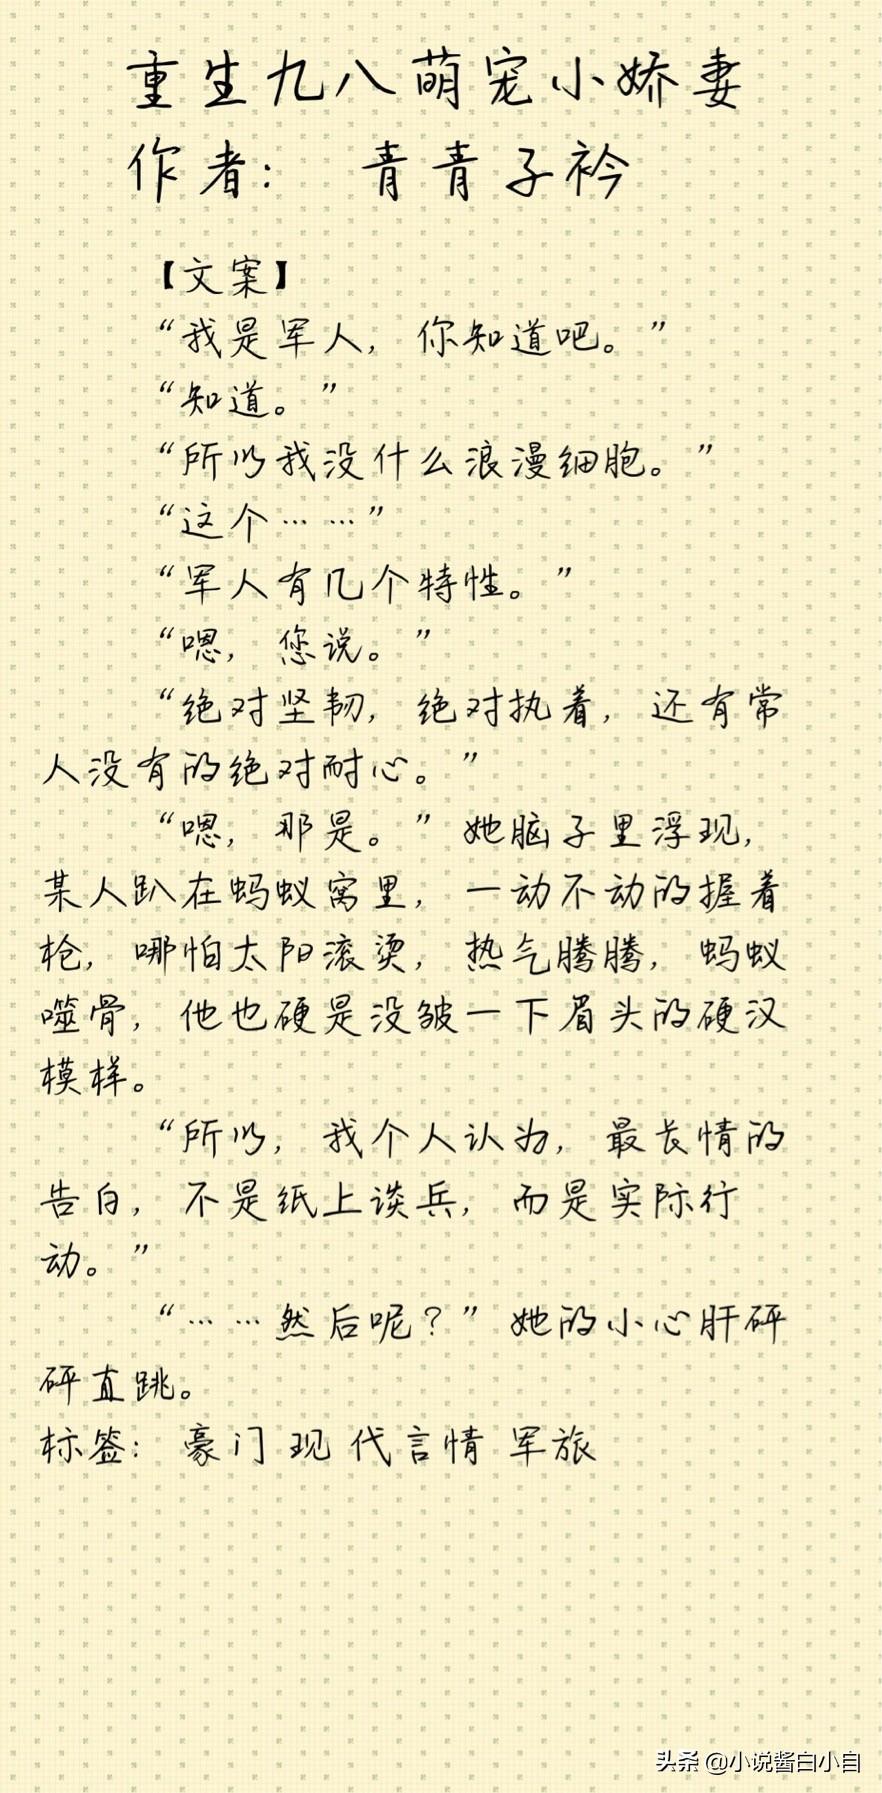 重生九八萌宠小娇妻
作者： 青青子衿
【文案】
“我是军人，你知道吧。”
“知道。”
“所以我没什么浪漫细胞。”
“这个……”
“军人有几个特性。”
“嗯，您说。”
“绝对坚韧，绝对执着，还有常
人没有的绝对耐心。”
“嗯，那是。”她脑子里浮现，
某人趴在蚂蚁窝里，一动不动的握着
枪，哪怕太阳滚烫，热气腾腾，蚂蚁
噬骨，他也硬是没皱一下眉头的硬汉
模样。
“所以，我个人认为，最长情的
告白，不是纸上谈兵，而是实际行
动。”
“……然后呢？”她的小心肝砰
砰直跳。
标签： 豪门 现代言情 军旅
头条 @小说酱白小白